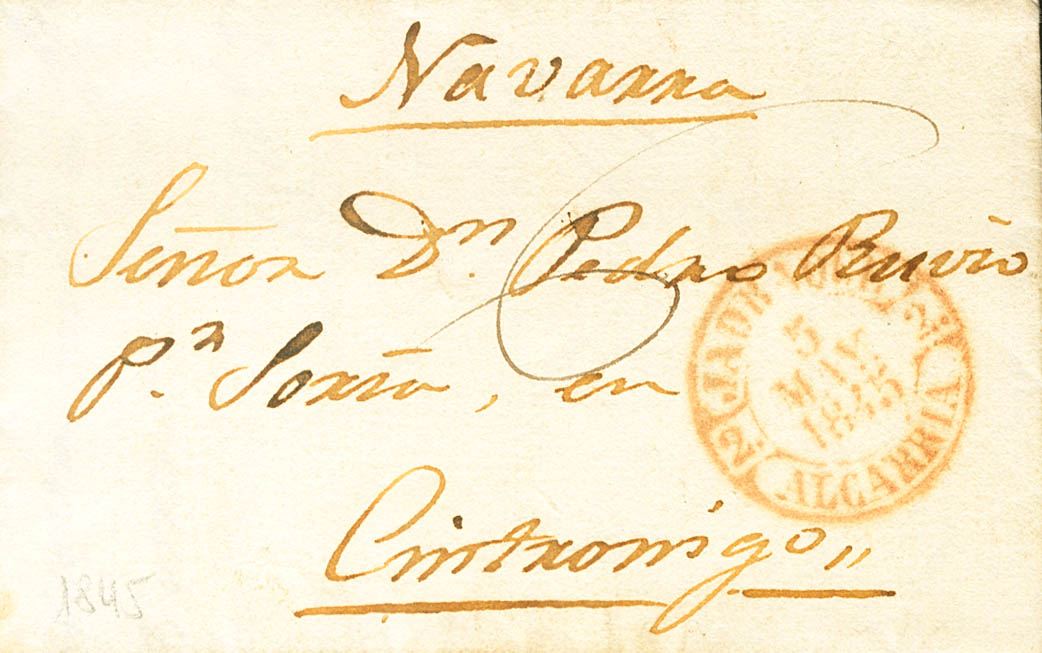 Navarra
Señor Dn. Pedro Ruvio
Pr. Soria, en
Cintronigo
5
MAY
1845
ALCARRIA
1845